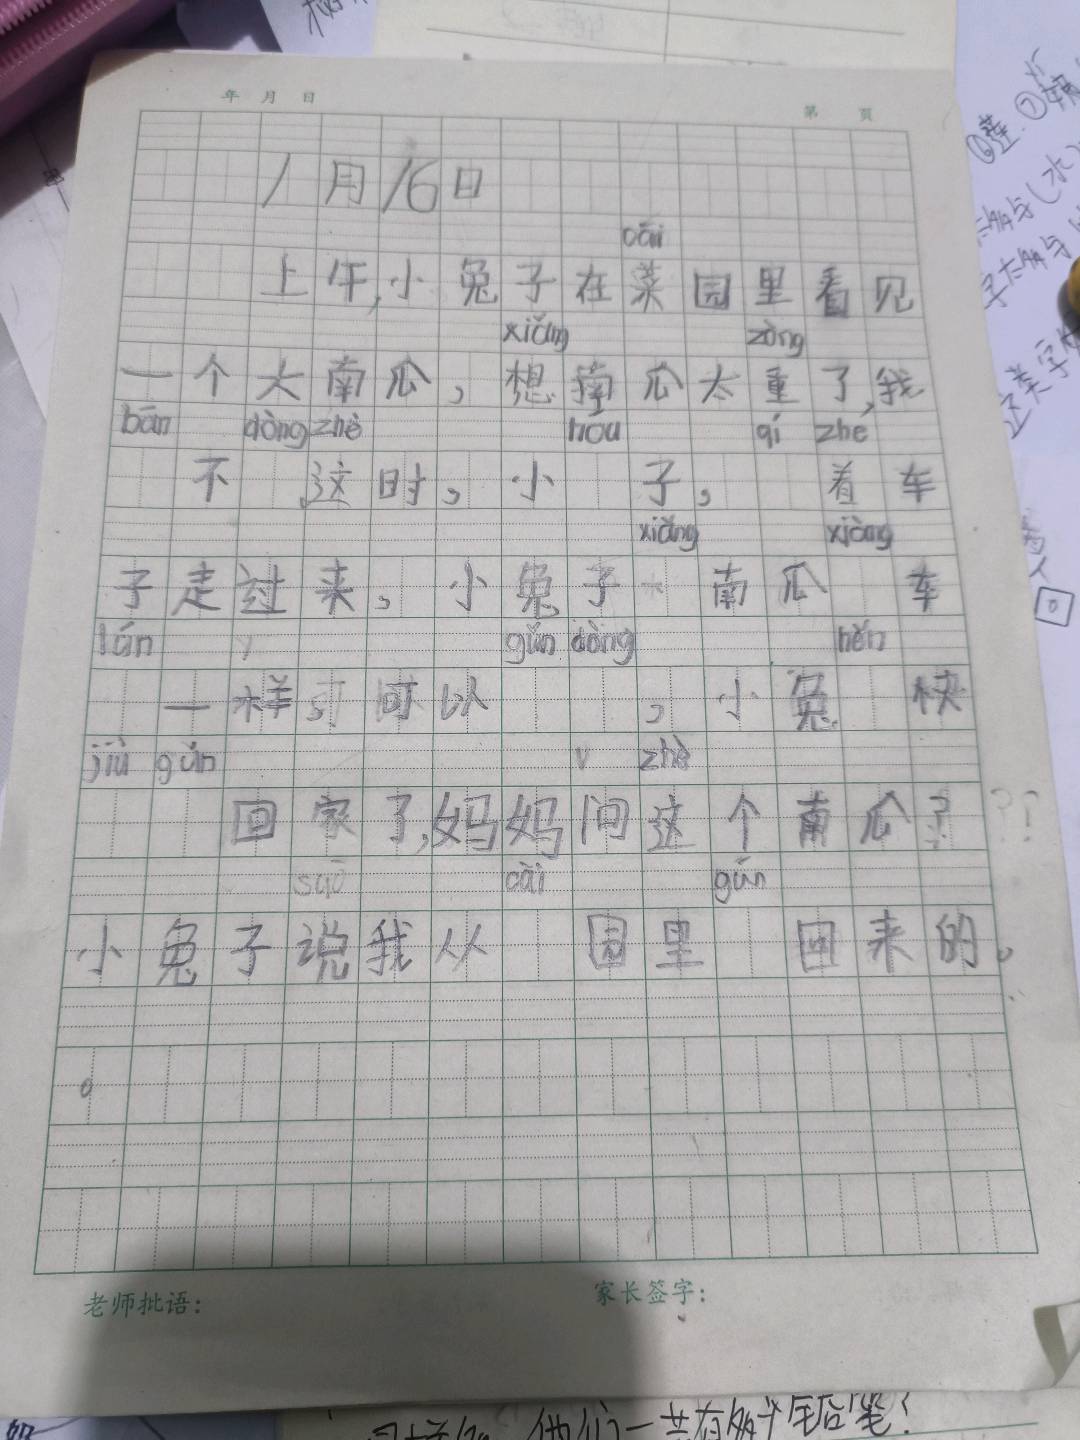 年 月 日
第 页
1月16日
cāi
上午,小兔子在菜园里看见
xiǎng zòng
一个大南瓜,想南瓜太重了,我
bān dòng zhè hou qí zhe
不 这时,小 子, 着车
xiǎng xiàng
子走过来,小兔子 南瓜 车
lún gǔn dòng hěn
一样,可以 ,小兔 快
jiù gǔn zhè
回家了,妈妈问这个南瓜?
cài gǔn
小兔子说我从 园里 回来的。
老师批语:
家长签字: